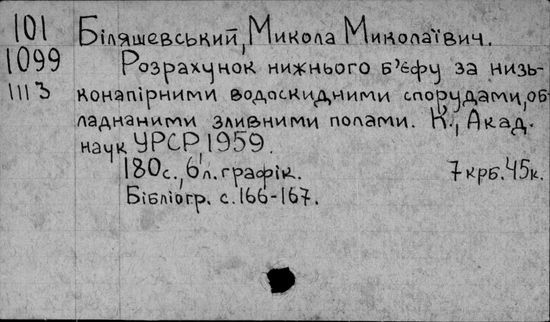 101
1099
1113
Біляшевський, Микола Миколаївич.
Розрахунок нижнього б'єфу за низь-
конапірними водоскидними спорудами, об-
ладнаними зливними полами. К., Акад.
наук УРСР, 1959.
180с., 6 л. графік. 7 крб. 45к.
Бібліогр. с. 166-167.